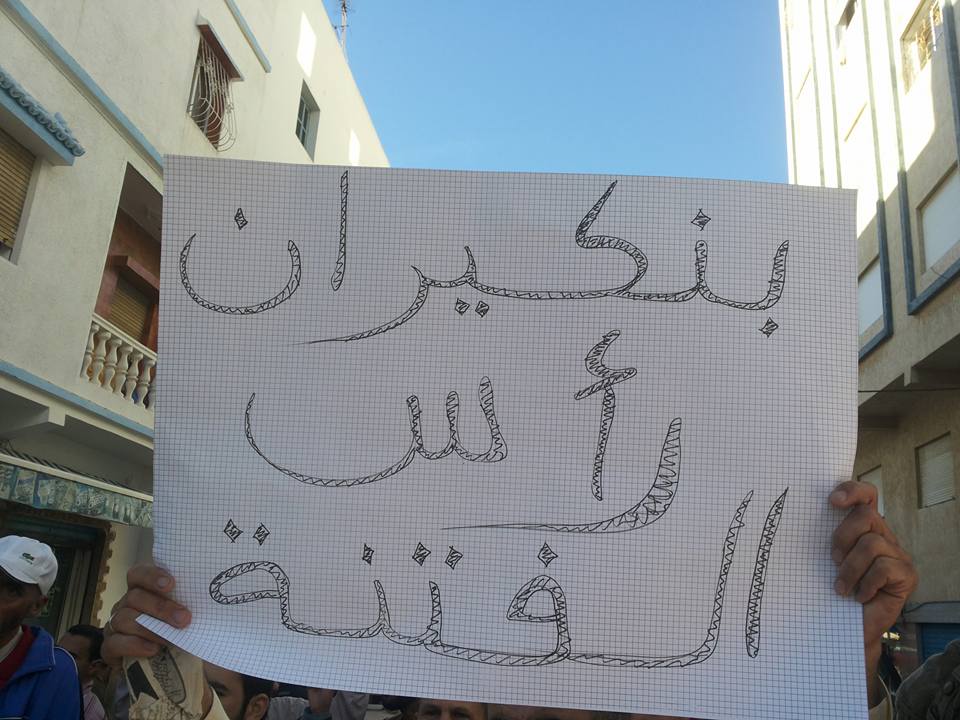 بنكيران
رأس
الفتنة